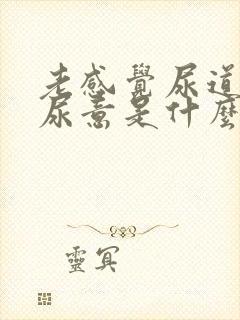 老感覺尿道
尿意是什麼
靈冥